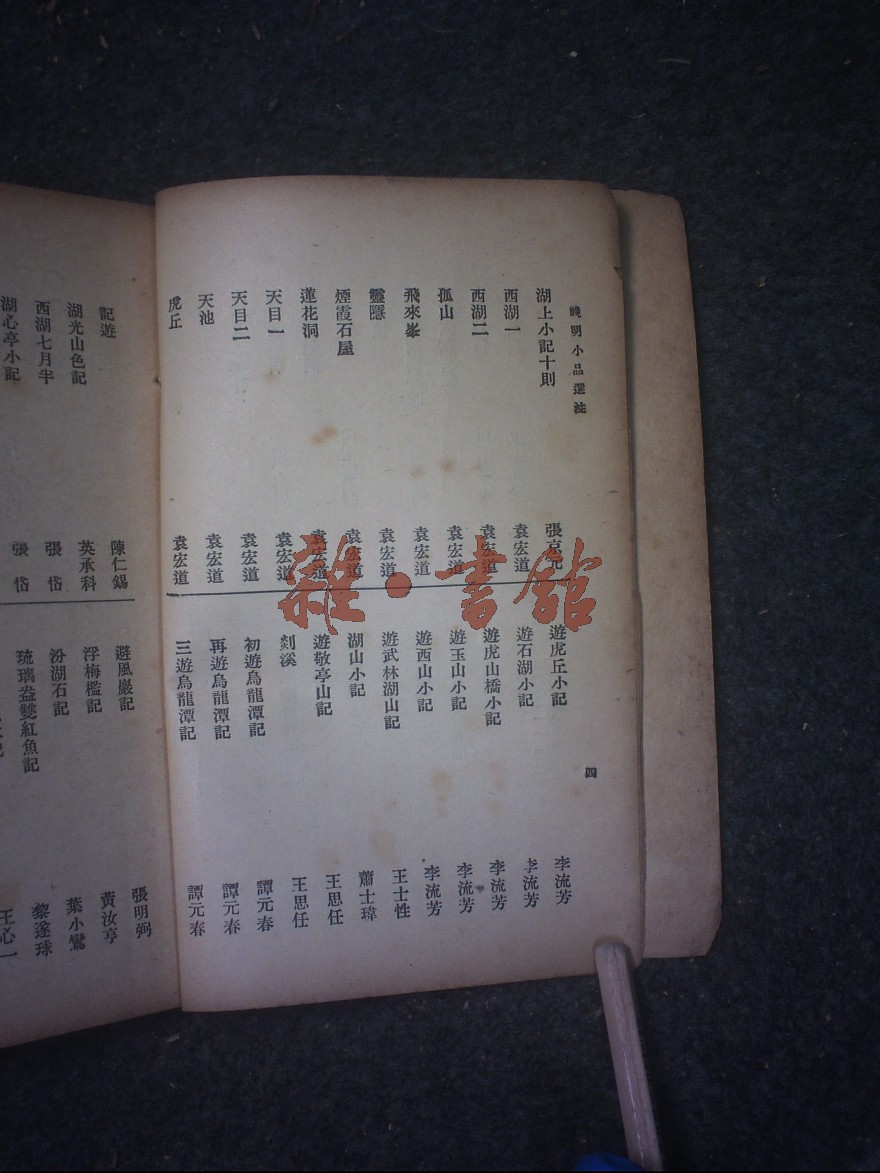 晚明小品選註
湖上小記十則 張京元
西湖一 袁宏道
西湖二 袁宏道
孤山 袁宏道
飛來峯 袁宏道
靈隱 袁宏道
煙霞石屋 袁宏道
蓮花洞 袁宏道
天目一 袁宏道
天目二 袁宏道
天池 袁宏道
虎丘 袁宏道
四
遊虎丘小記 李流芳
遊石湖小記 李流芳
遊虎山橋小記 李流芳
遊玉山小記 李流芳
遊西山小記 李流芳
遊武林湖山記 王士性
湖山小記 蕭士瑋
遊敬亭山記 王思任
剡溪 王思任
初遊烏龍潭記 譚元春
再遊烏龍潭記 譚元春
三遊烏龍潭記 譚元春
記遊 陳仁錫
湖光山色記 英承科
西湖七月半 張岱
湖心亭小記 張岱
避風巖記 張明弼
浮梅檻記 黃汝亨
汾湖石記 葉小鸞
琉璃盎雙紅魚記 黎遂球
王心一
雜·書館